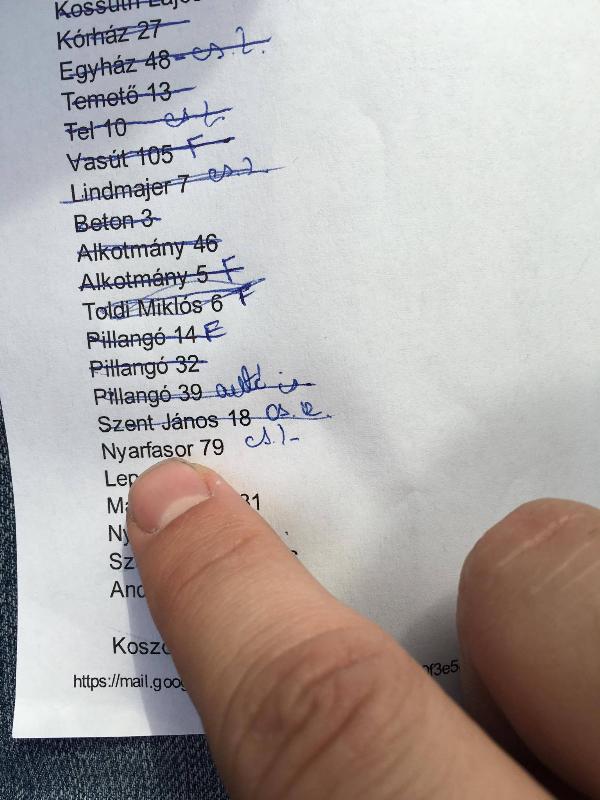 Kossuth Lajos
Kórház 27
Egyház 48 - cs.l.
Temető 13
Tel 10 cs.l.
Vasút 105 F
Lindmajer 7 cs.l.
Beton 3
Alkotmány 46
Alkotmány 5 F
Toldi Miklós 6 F
Pillangó 14 F
Pillangó 32
Pillangó 39 autó is
Szent János 18
Nyarfasor 79 cs.l.
Lep
Ma 31
Ny
Sz
And
Koszo
https://mail.goog 0f3e5